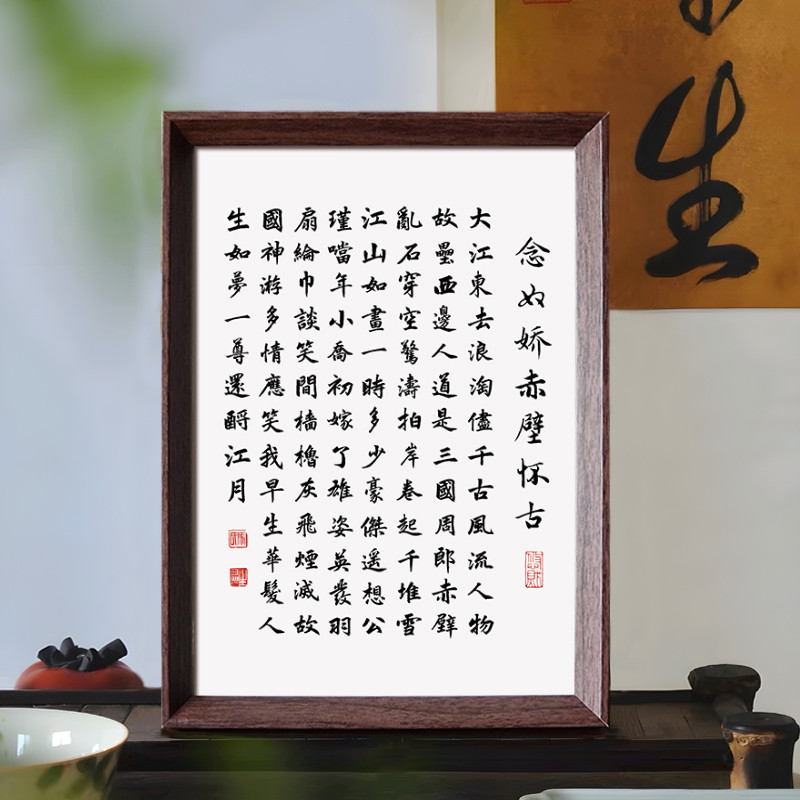 念奴娇赤壁怀古
大江東去浪淘儘千古風流人物
故壘西邊人道是三國周郎赤壁
亂石穿空驚濤拍岸卷起千堆雪
江山如畫一時多少豪傑遥想公
瑾噹年小喬初嫁了雄姿英發羽
扇綸巾談笑間檣櫓灰飛煙滅故
國神游多情應笑我早生華髮人
生如夢一尊還酹江月
生